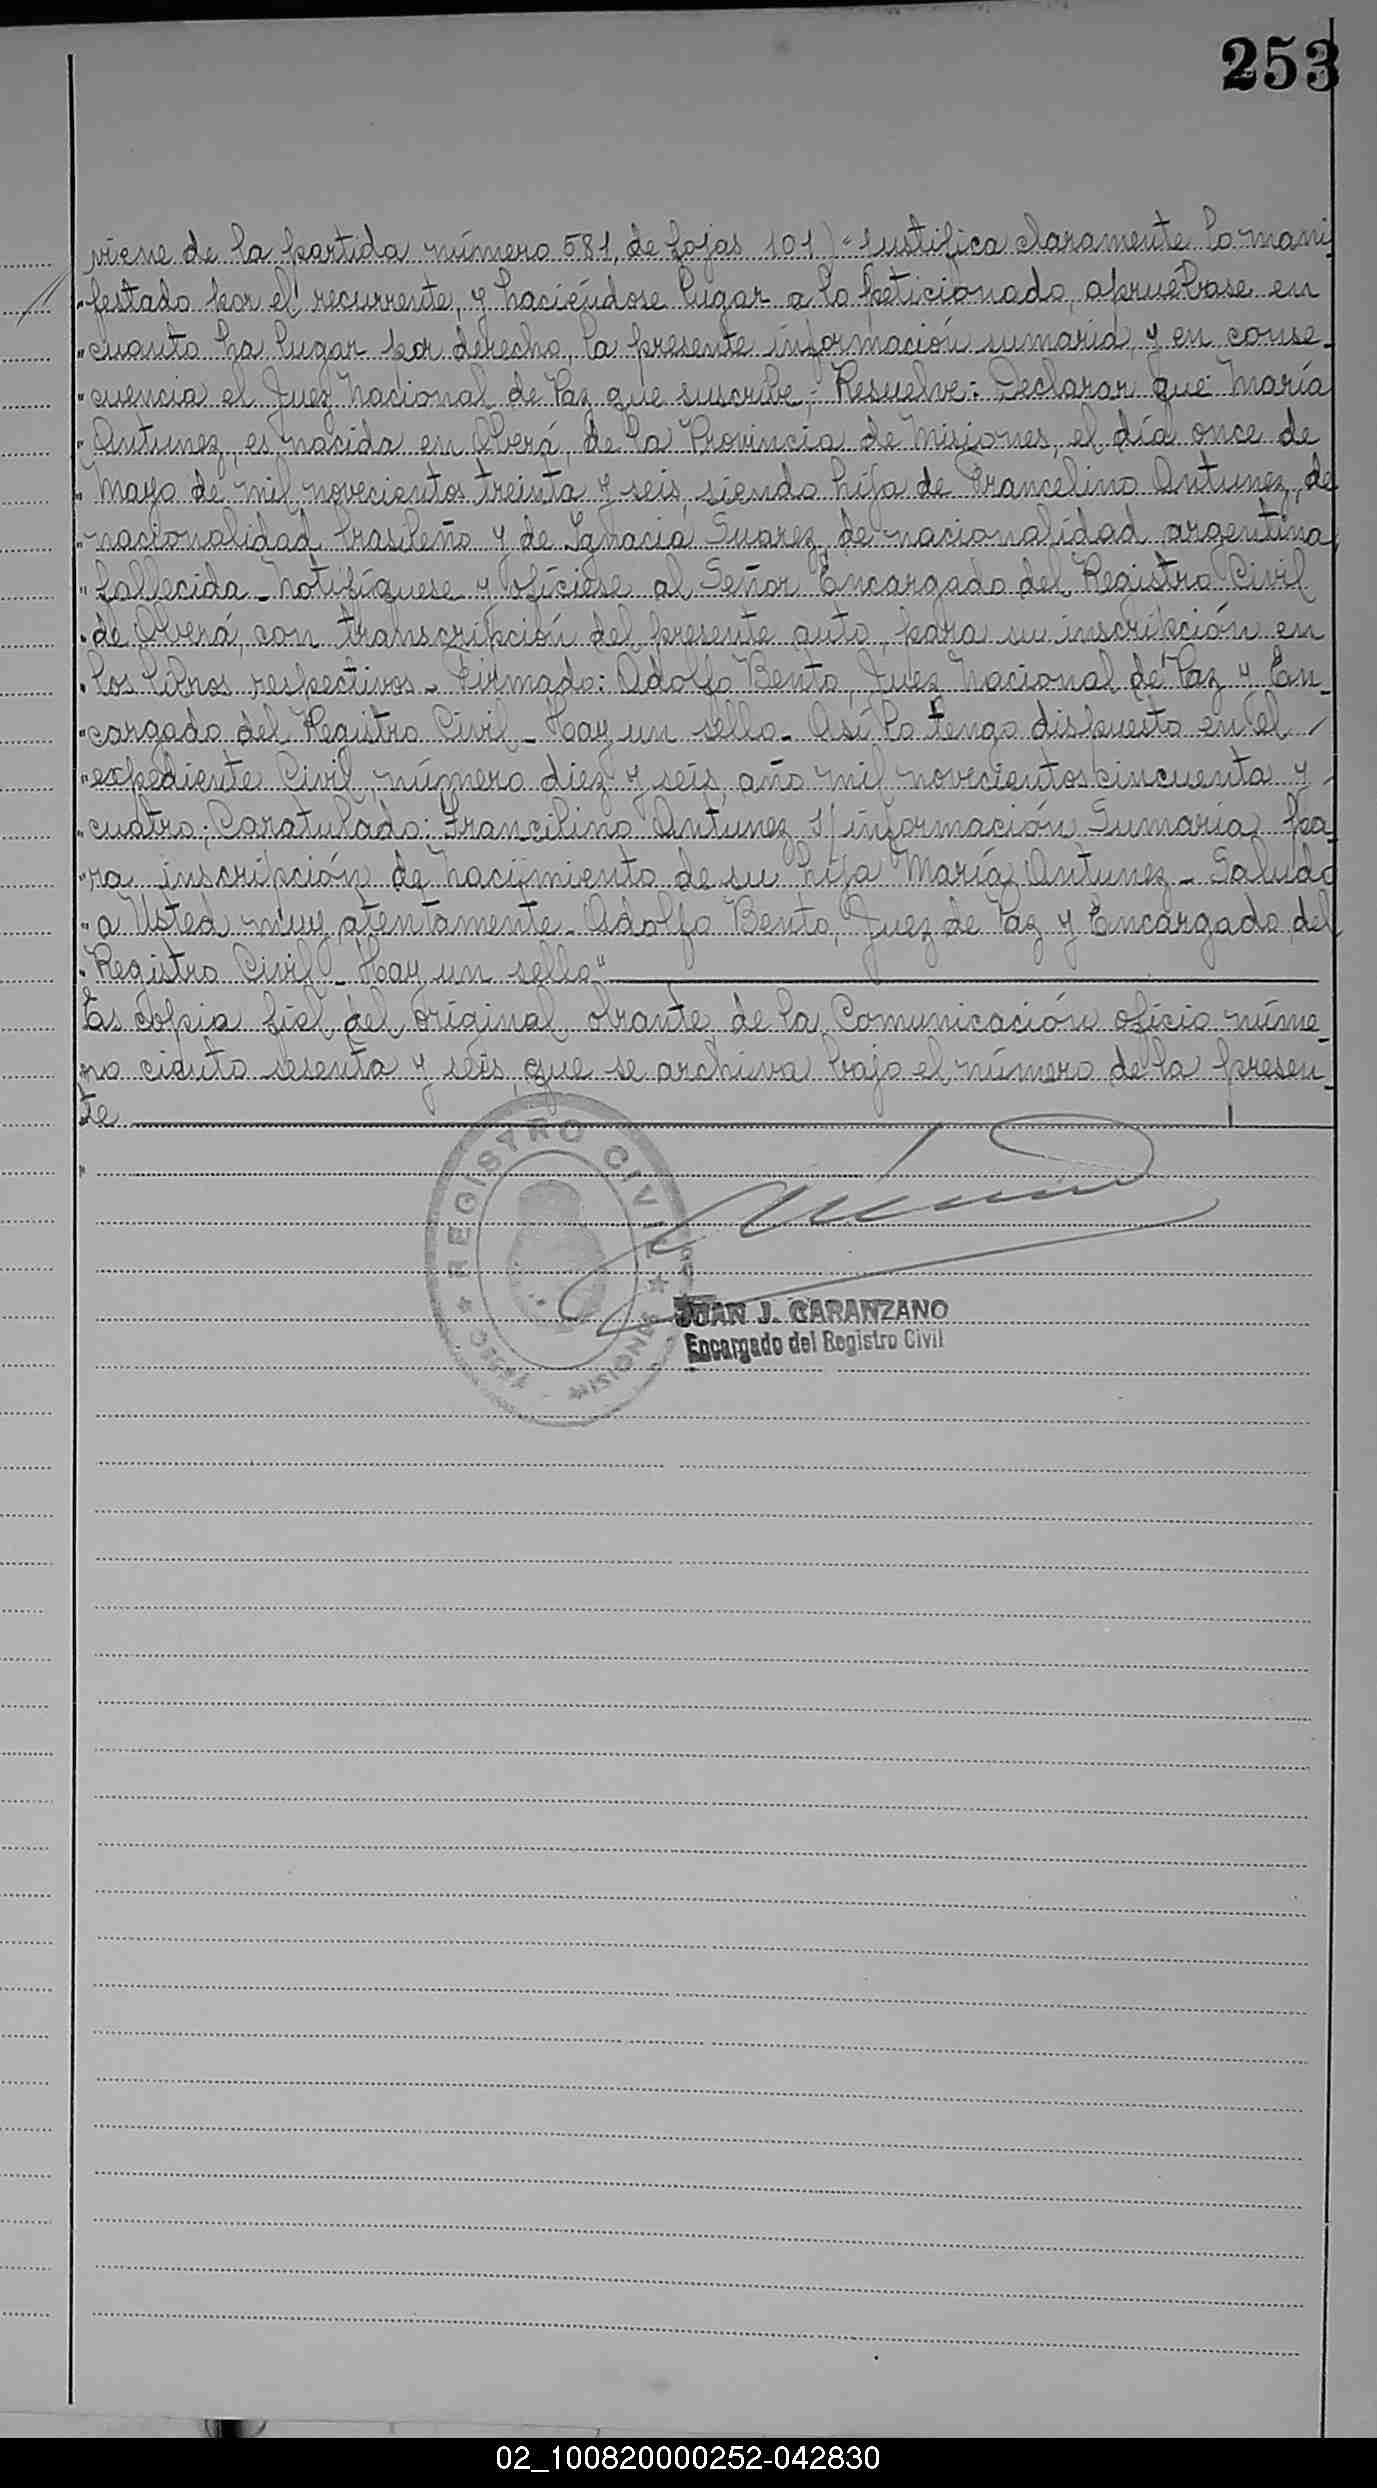 253
viene de la partida número 581, de fojas 101) "Justifica claramente lo mani
"festado por el recurrente, y haciéndose lugar a lo peticionado, apruébase en
"cuanto ha lugar por derecho, la presente información sumaria, y en conse-
"cuencia el Juez Nacional de Paz que suscribe,- Resuelve: Declarar que María
"Antunez, es nacida en Oberá, de la Provincia de Misiones, el día once de
"Mayo de mil novecientos treinta y seis, siendo hija de Francelino Antunez, de
"nacionalidad brasileño y de Ignacia Suarez, de nacionalidad argentina,
"fallecida - Notifíquese y ofíciese al Señor Encargado del Registro Civil
"de Oberá, con transcripción del presente auto, para su inscripción en
"los libros respectivos - Firmado: Adolfo Bento, Juez Nacional de Paz y En-
"cargado del Registro Civil - Hay un sello - Así lo tengo dispuesto en el
"expediente Civil, número diez y seis, año mil novecientos cincuenta y
"cuatro; Caratulado: Francilino Antunez S/ información Sumaria, pa
"ra inscripción de Nacimiento de su hija María Antunez - Saludo
"a Usted muy atentamente - Adolfo Bento, Juez de Paz y Encargado del
"Registro Civil - Hay un sello"
Es copia fiel del original obrante de la Comunicación oficio núme-
ro ciento sesenta y seis, que se archiva bajo el número de la presen-
te
REGISTRO CIVIL
MISIONES
JUAN J. GARANZANO
Encargado del Registro Civil
02_100820000252-042830